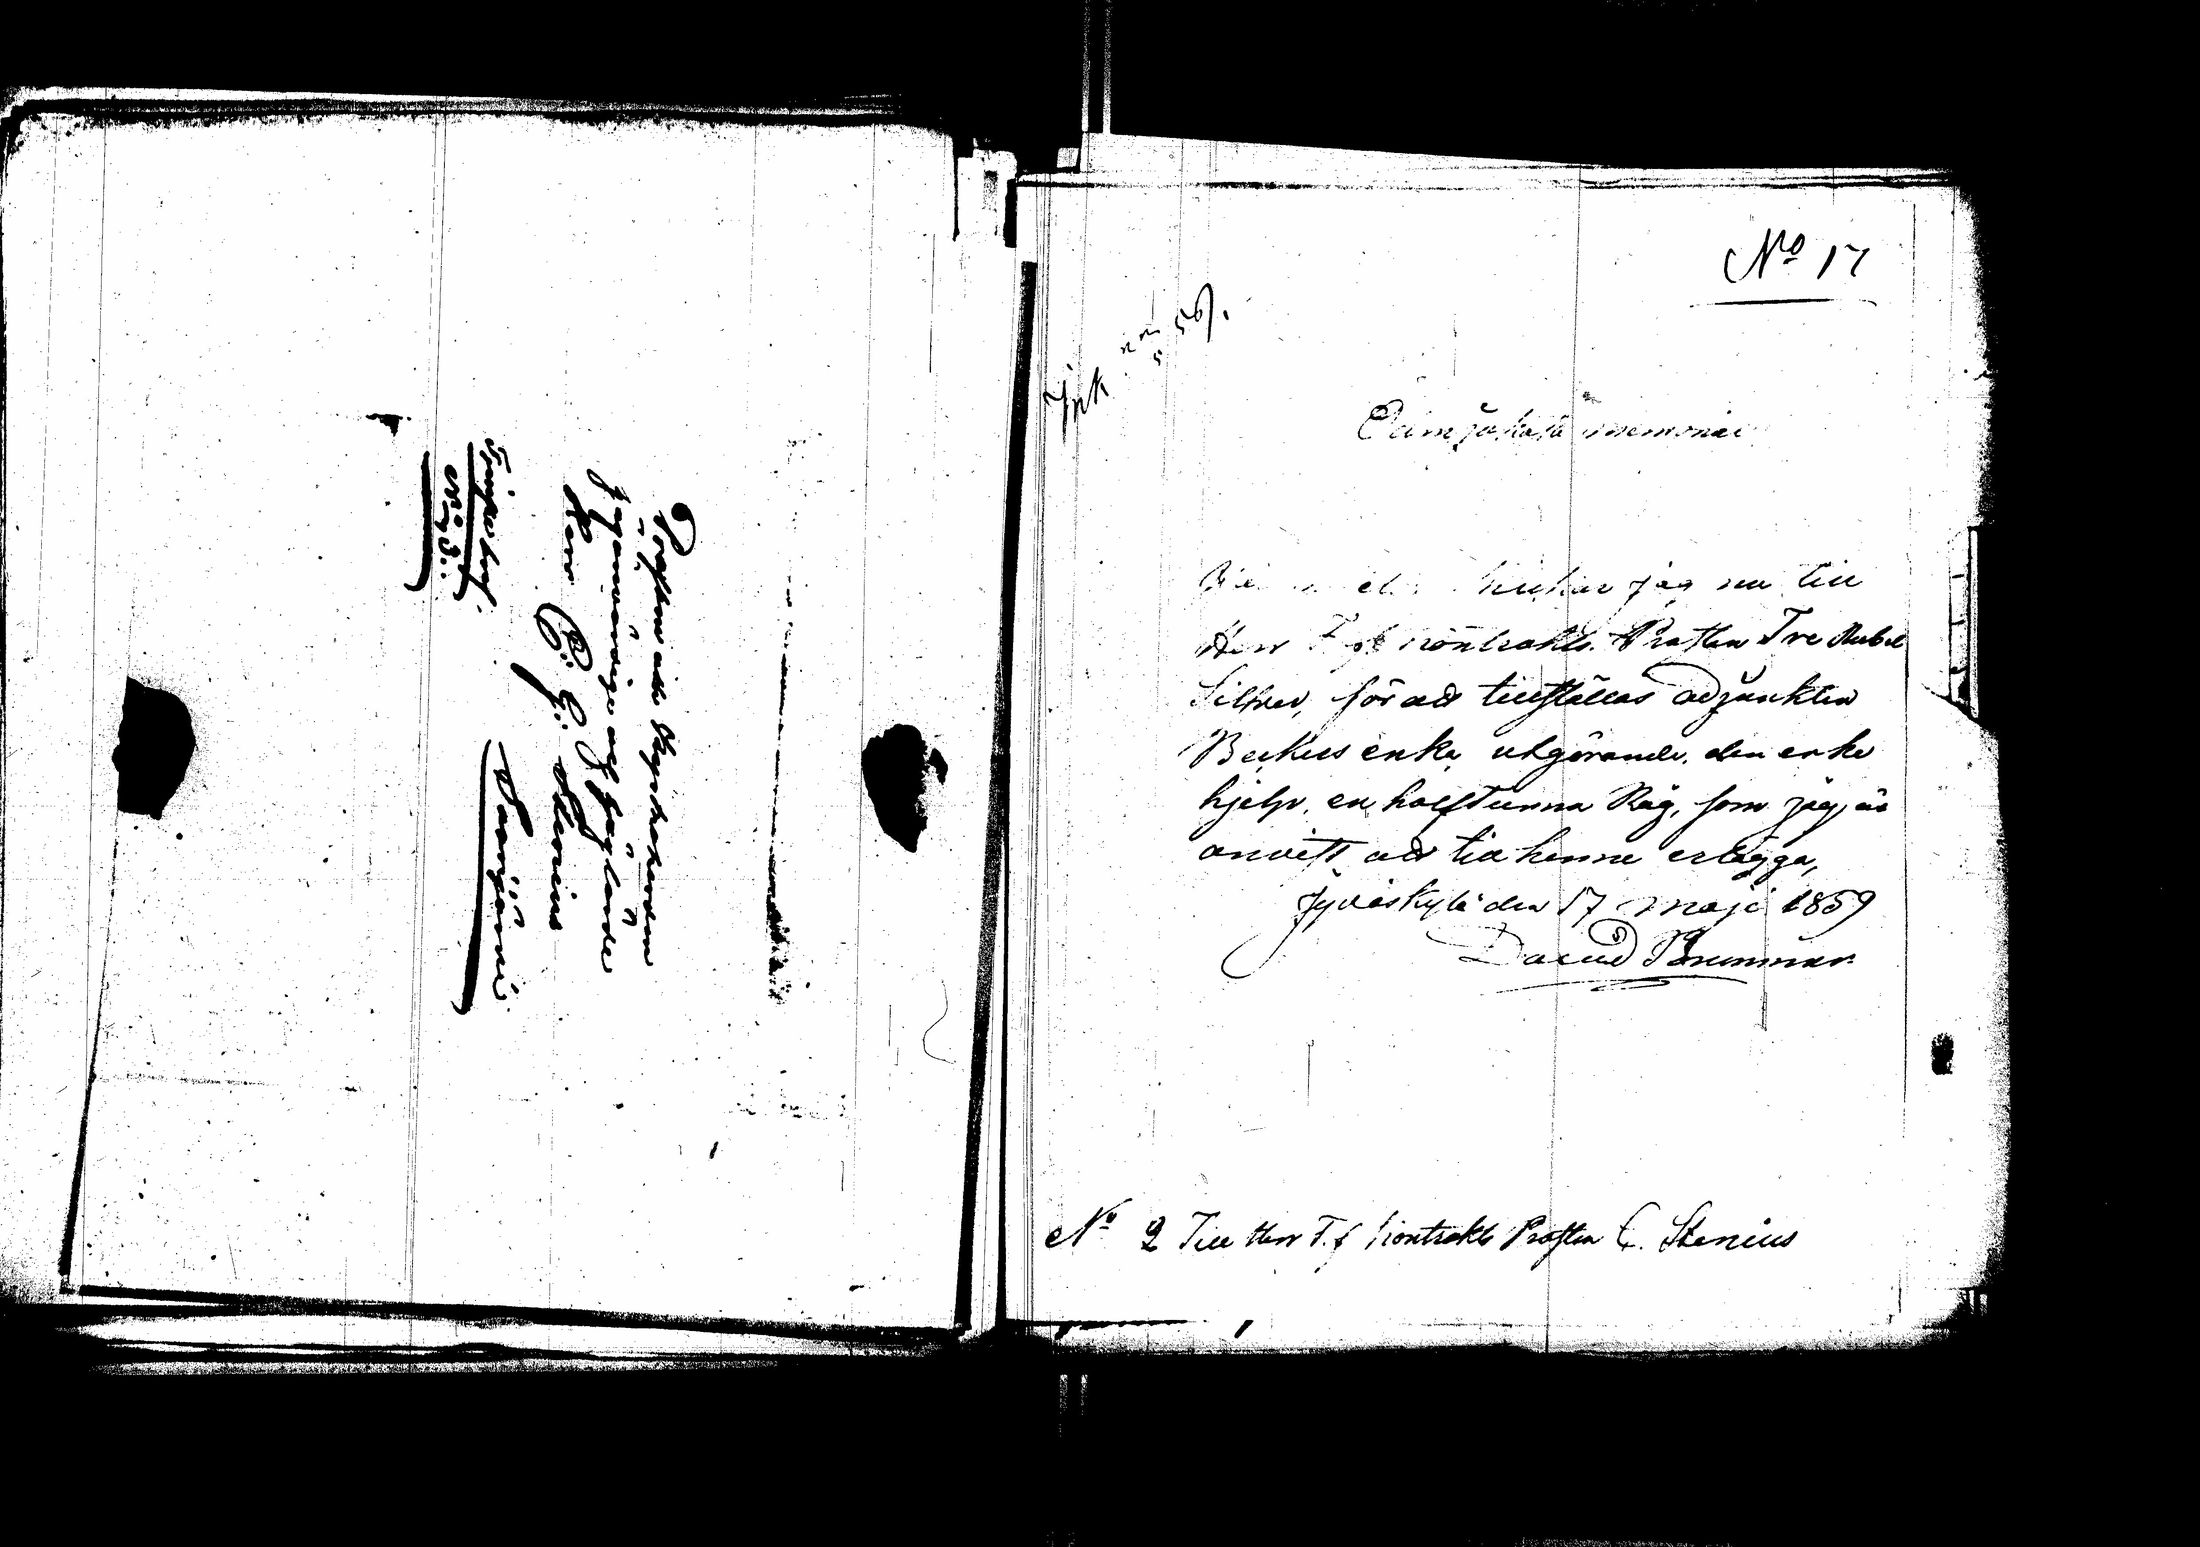 Prosten och Kyrkoherden
Högärevördige och Höglärde
Herr C. G. Stenius
Saarijärvi
Tjenstebref.
N:o 23.
No 17
Ink 5 59.
Ödmjukaste memorial
skickar jag nu till
Herr T. f. Kontrakts Prosten Tre Rubel
Silfver, för att tillställas adjunkten
enka utgörande den enke
hjelp, en half tunna Råg, som jag är
anvist att till henne erlägga,
Jyväskylä den 17 Maji 1859
David Brummer
No 2 Till Herr T. f Kontrakts Prosten C. Stenius